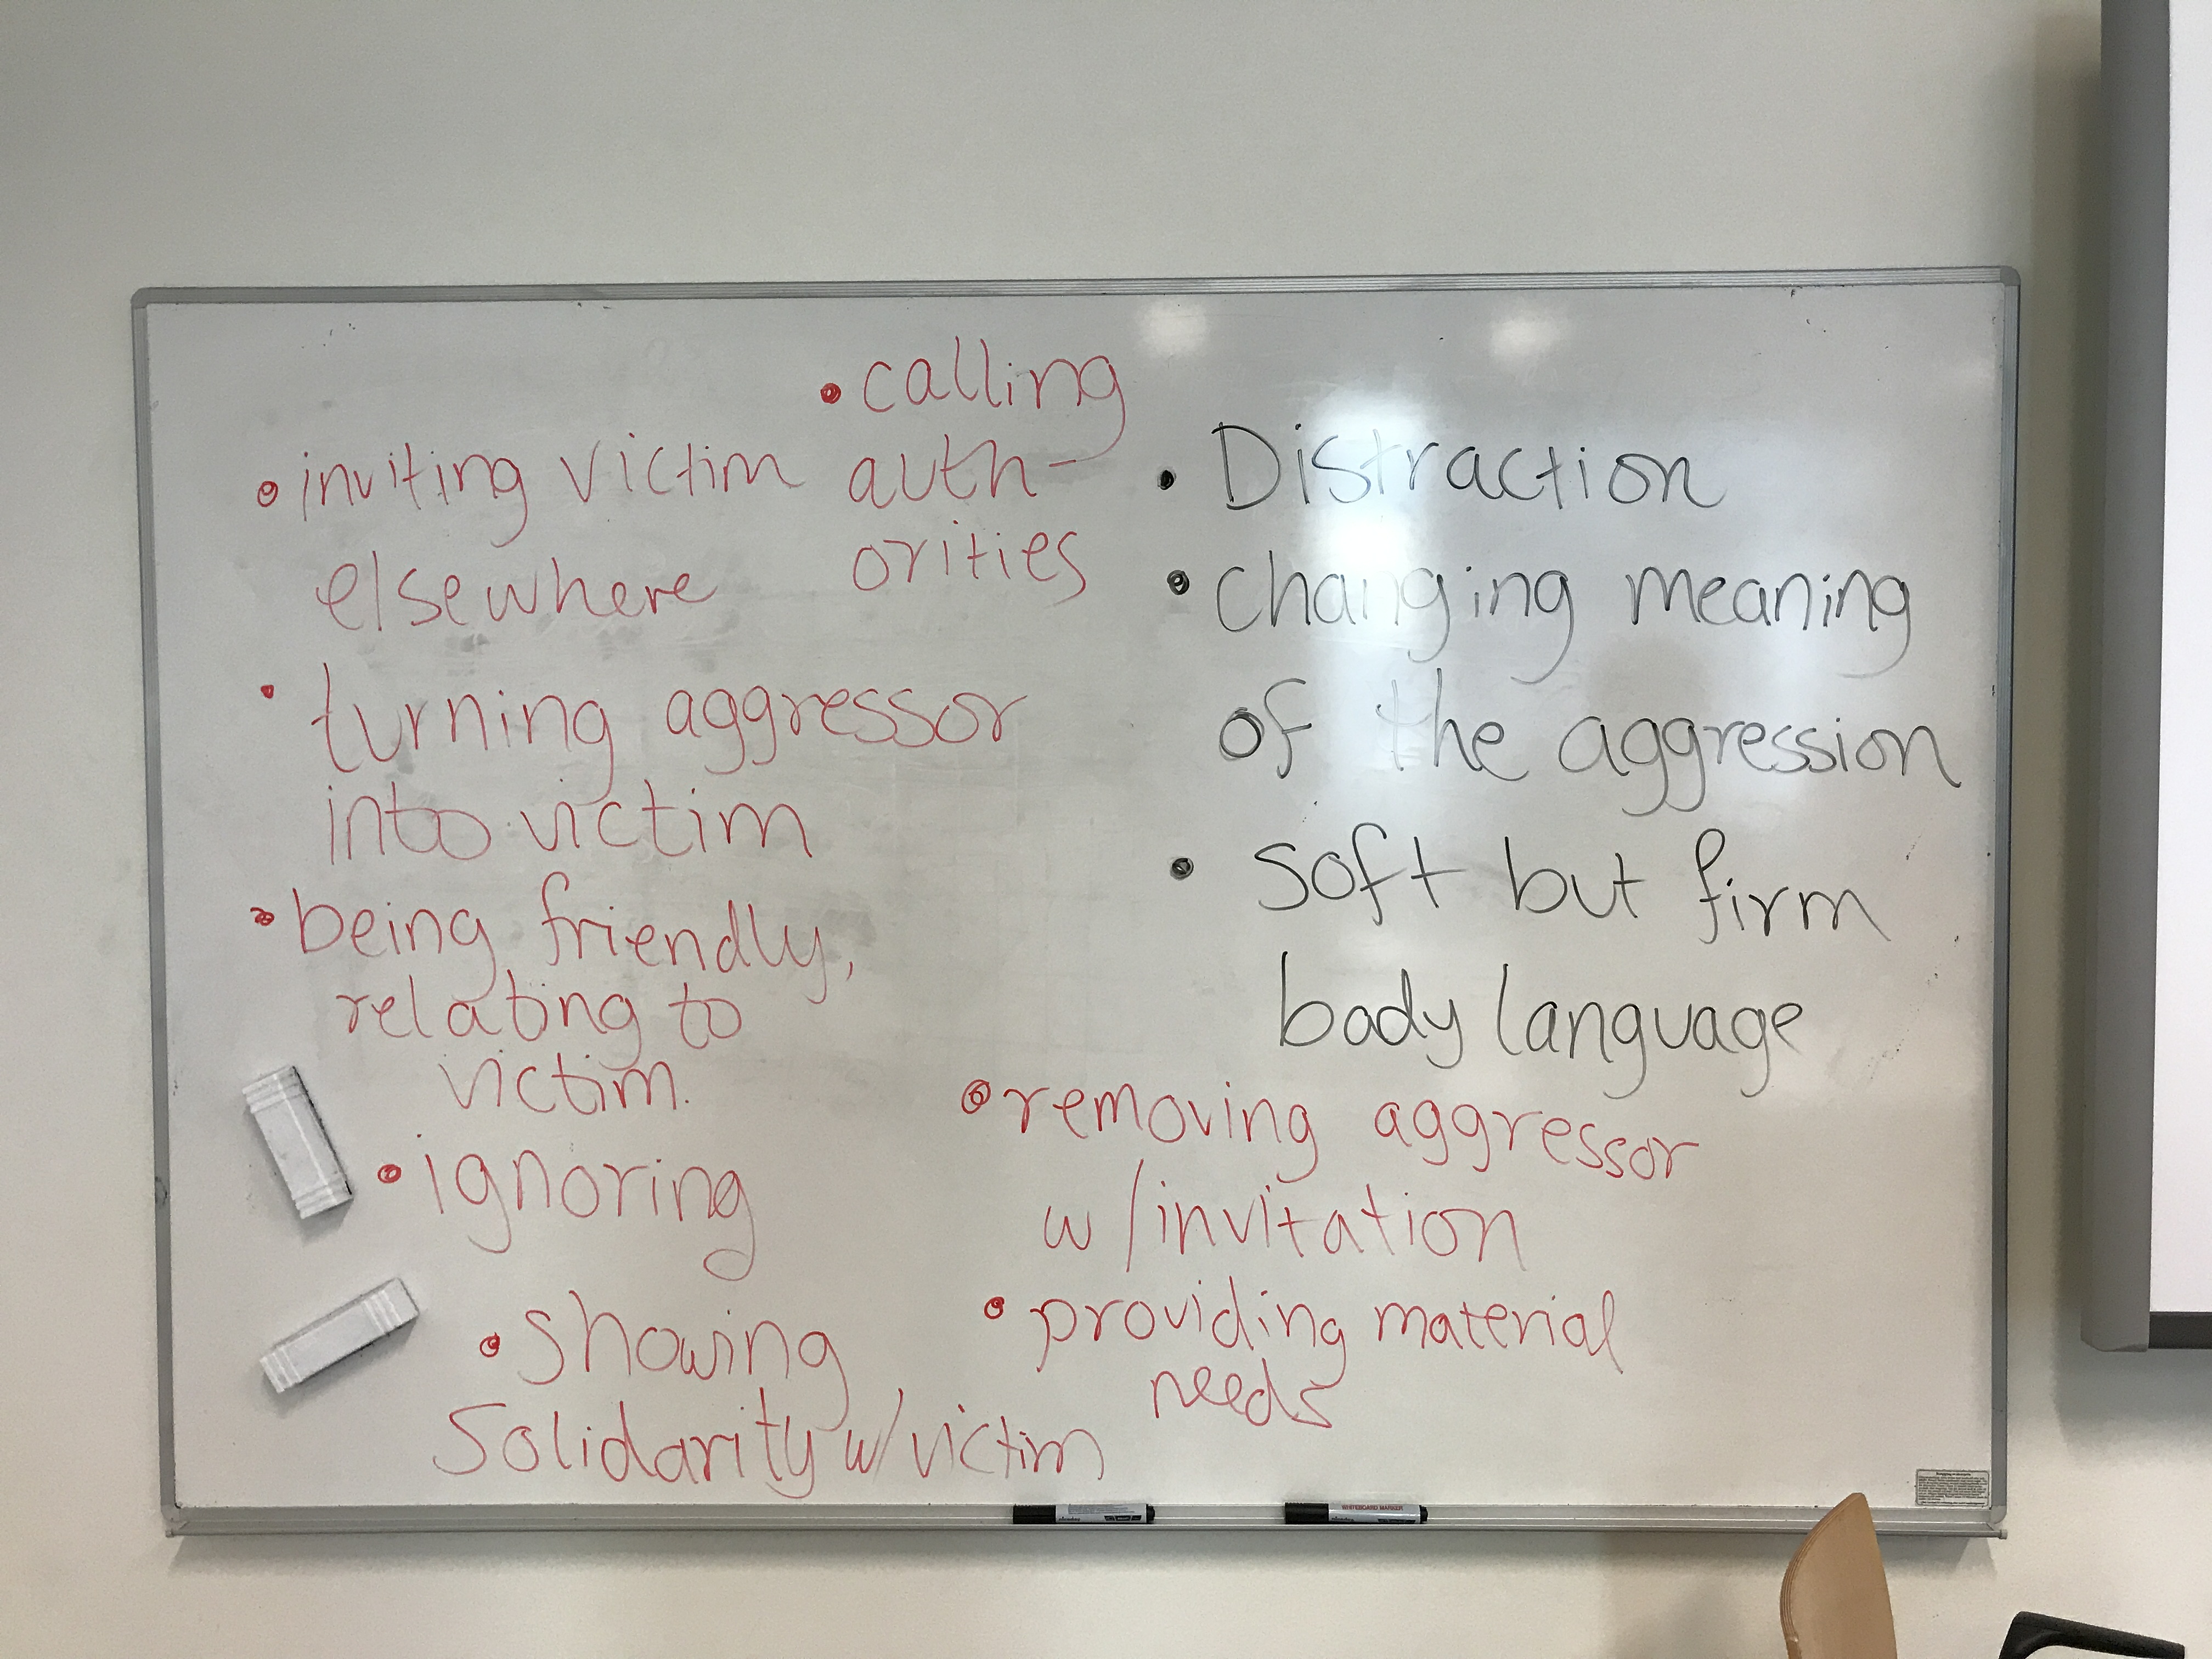 • calling
auth-
orities
• inviting victim
elsewhere
• turning aggressor
into victim
• being friendly,
relating to
victim.
• ignoring
• showing
Solidarity w/victim
• Distraction
• changing meaning
of the aggression
• soft but firm
body language
• removing aggressor
w/invitation
• providing material
needs
WHITEBOARD MARKER